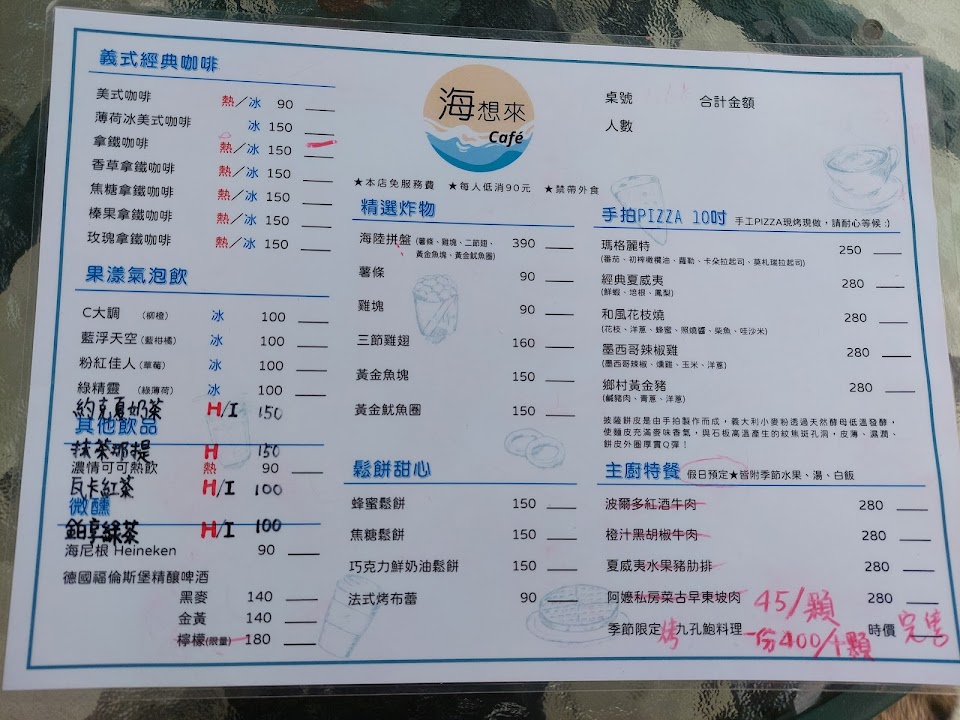 義式經典咖啡
美式咖啡 熱/冰 90
薄荷冰美式咖啡 冰 150
拿鐵咖啡 熱/冰 150
香草拿鐵咖啡 熱/冰 150
焦糖拿鐵咖啡 熱/冰 150
榛果拿鐵咖啡 熱/冰 150
玫瑰拿鐵咖啡 熱/冰 150
果漾氣泡飲
C大調 (柳橙) 冰 100
藍浮天空 (藍柑橘) 冰 100
粉紅佳人 (草莓) 冰 100
綠精靈 (綠薄荷) 冰 100
約克夏奶茶 H/I 150
其他飲品
抹茶那提 H 150
濃情可可熱飲 熱 90
瓦卡紅茶 H/I 100
微醺
鉑享綠茶 H/I 100
海尼根 Heineken 90
德國福倫斯堡精釀啤酒
黑麥 140
金黃 140
檸檬(限量) 180
海想來
Café
桌號 合計金額
人數
★本店免服務費 ★每人低消90元 ★禁帶外食
精選炸物
海陸拼盤 (薯條、雞塊、二節翅、 390
黃金魚塊、黃金魷魚圈)
薯條 90
雞塊 90
三節雞翅 160
黃金魚塊 150
黃金魷魚圈 150
鬆餅甜心
蜂蜜鬆餅 150
焦糖鬆餅 150
巧克力鮮奶油鬆餅 150
法式烤布蕾 90
手拍PIZZA 10吋 手工PIZZA現烤現做，請耐心等候 :)
瑪格麗特 250
(番茄、初榨橄欖油、蘿勒、卡朵拉起司、莫札瑞拉起司)
經典夏威夷 280
(鮮蝦、培根、鳳梨)
和風花枝燒 280
(花枝、洋蔥、蜂蜜、照燒醬、柴魚、哇沙米)
墨西哥辣椒雞 280
(墨西哥辣椒、燻雞、玉米、洋蔥)
鄉村黃金豬 280
(鹹豬肉、青蔥、洋蔥)
披薩餅皮是由手拍製作而成，義大利小麥粉透過天然酵母低溫發酵，
使麵皮充滿麥味香氣，與石板高溫產生的紋焦斑孔洞，皮薄、濕潤、
餅皮外圈厚實Q彈！
主廚特餐 假日預定★皆附季節水果、湯、白飯
波爾多紅酒牛肉 280
橙汁黑胡椒牛肉 280
夏威夷水果豬肋排 280
阿嬤私房菜古早東坡肉 280
45/顆
季節限定 烤 九孔鮑料理 時價 完售
一份400/10顆